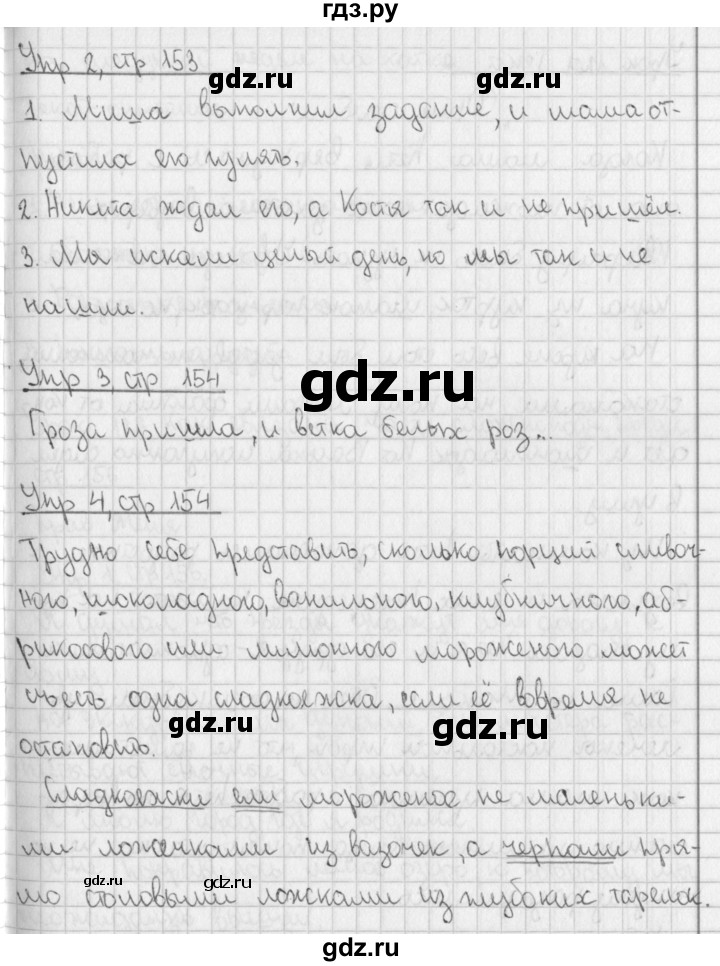 гдз.ру
Упр 2, стр 153
gdz.ru
1. Миша выполнил задание, и мама от-
пустила его гулять.
gdz.ru
gdz.ru
2. Никита ждал его, а Костя так и не пришёл.
3. Мы искали целый день, но мы так и не
нашли.
Упр 3, стр 154
gdz.ru
Гроза пришла, и ветка белых роз...
Упр 4, стр 154
Трудно себе представить, сколько порций сливоч-
gdz.ru
gdz.ru
ного, шоколадного, ванильного, клубничного, аб-
рикосового или лимонного мороженого может
съесть одна сладкоежка, если её вовремя не
gdz.ru
gdz.ru
остановить.
Сладкоежки ели мороженое не маленьки-
ми ложечками из вазочек, а черпали пря-
gdz.ru
gdz.ru
мо столовыми ложками из глубоких тарелок.
gdz.ru